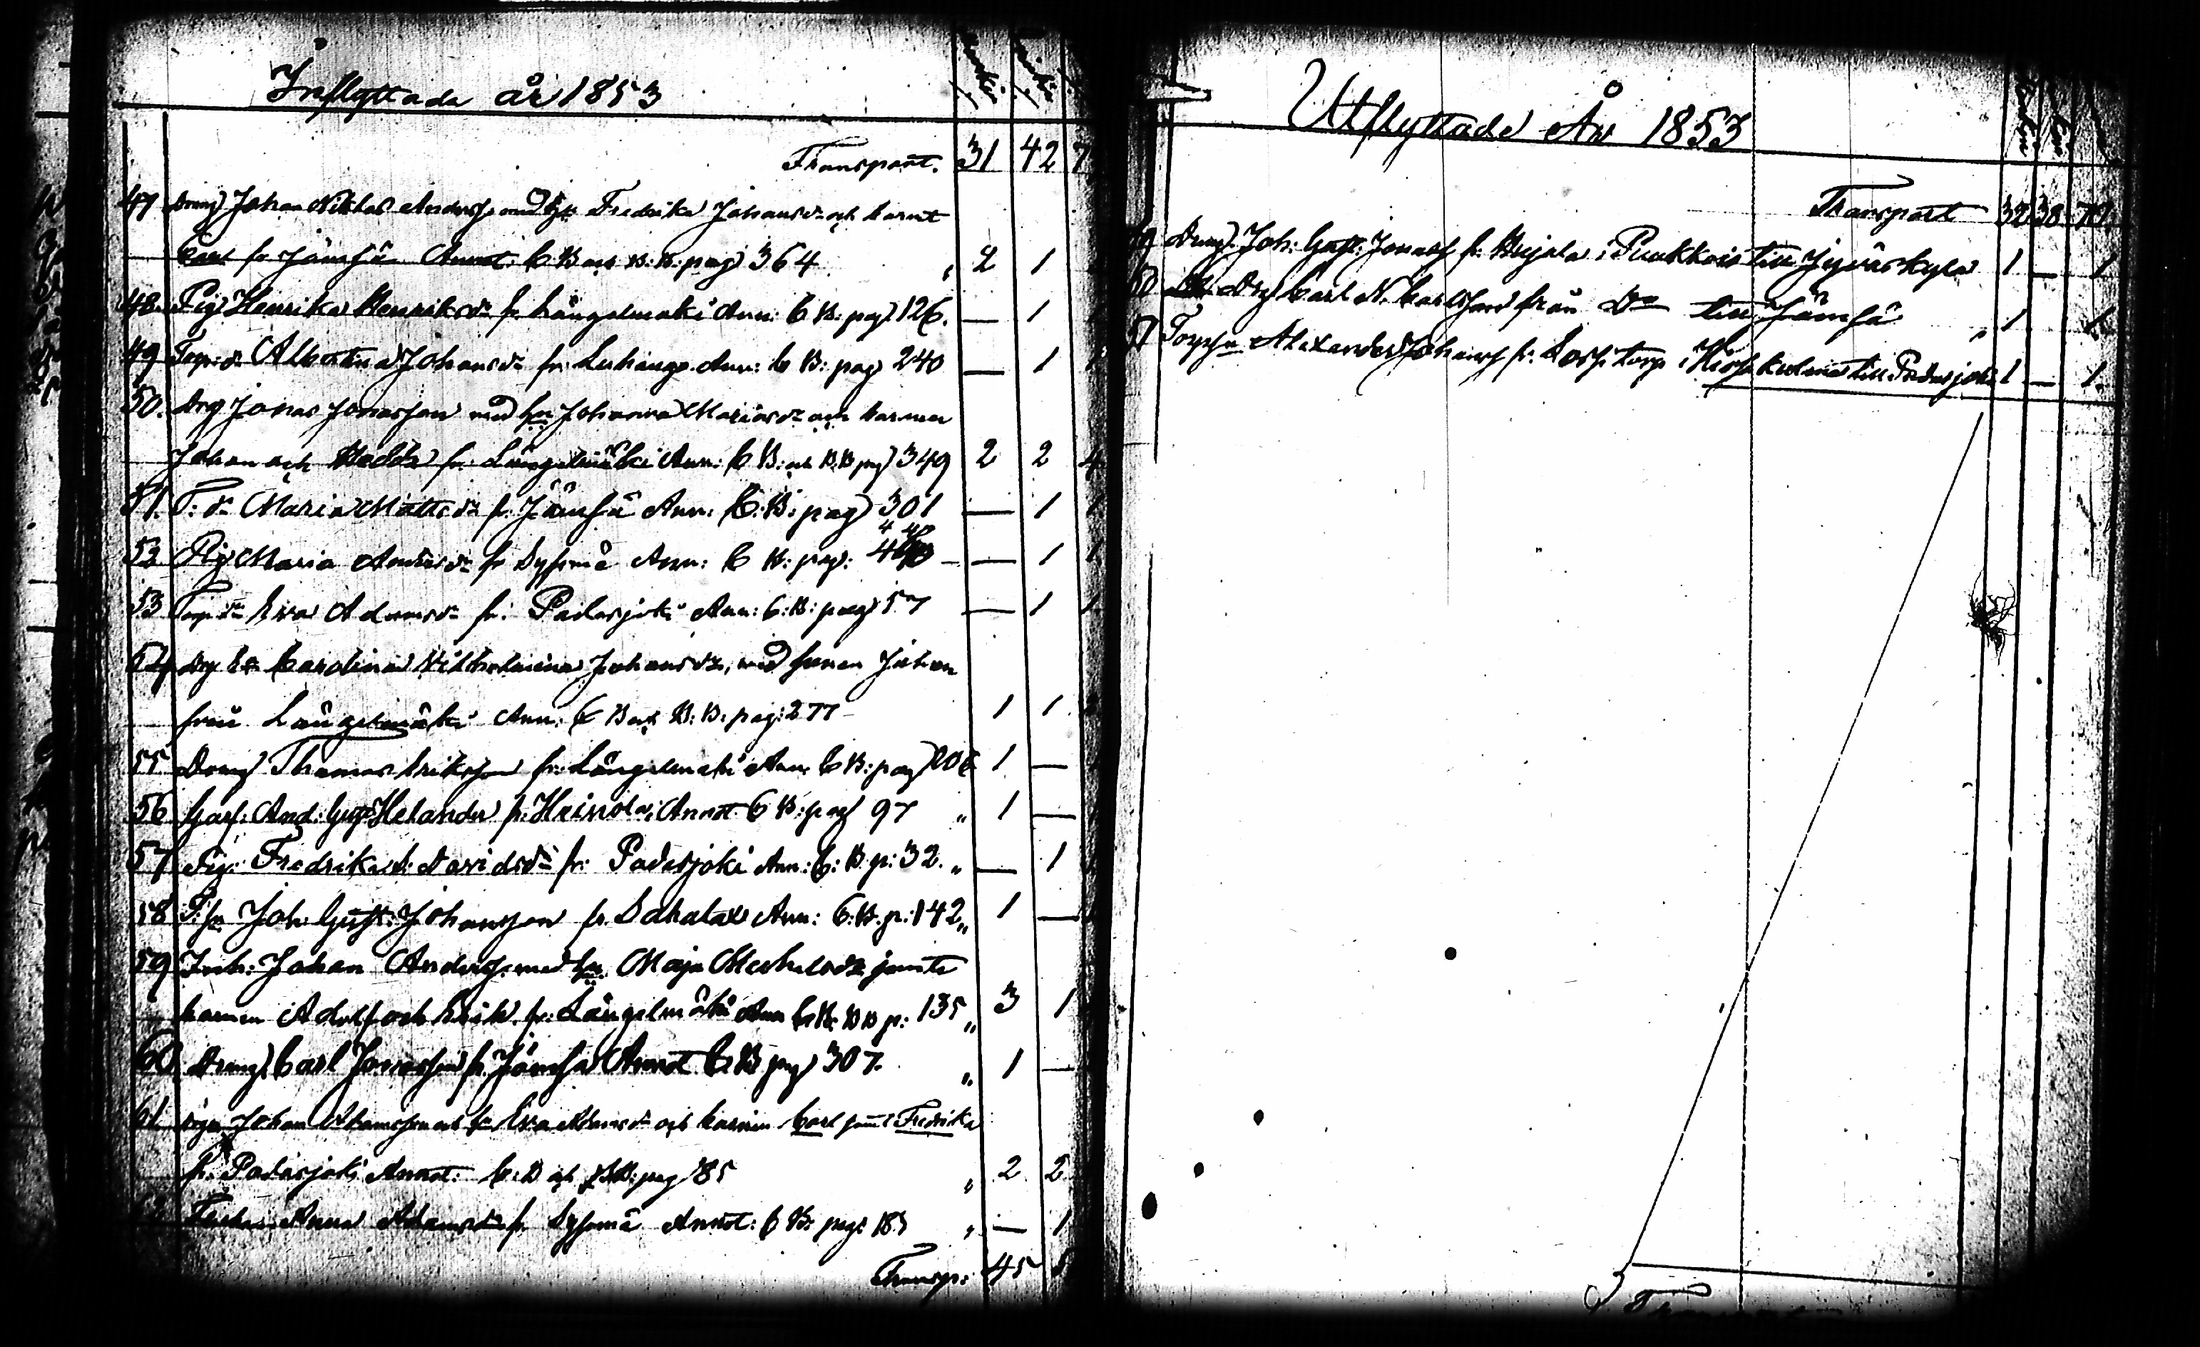 Inflyttade år 1853
Transport. 31 42 7
47 Dreng Johan Niklas Anderss. med h. Fredrika Johansdr och barnet
Carl fr Jämsä Annot: C B och B.B. pag 364 „ 2 1
48. Pig. Henrika Henriksdr fr Längelmäki Ann: C B. pag. 126. — 1
49 Torp. dr Albertina Johansdr fr Luhango Ann: C B: pag 240 — 1 1
50. Drg Jonas Jonasson med hu Johanna Mariasdr och barnen
Johan och Hedda fr. Längelmäki Ann: C B: och B.B pag 349 2 2 4
51. T: dr Maria Mattsdr fr. Jämsä Ann: C: B: pag 301 — 1
52 Pig Maria Andersdr fr Sysmä Ann: C B: pag: — — 1 1
53 Torp dr Eva Adamsdr fr. Padasjoki Ann: C: B: pag 57 — 1 1
54 Drg Carolina Wilhelmina Johansdr, med sonen Johan
från Längelmäki Ann: C B och B: B: pag: 277 1 1
55 Dreng Thomas Eriksson fr. Längelmäki Ann C B: pag 206 1 —
56 Garf: And: Gust Helander fr. Heinola, Annot C B: pag 97 „ 1 —
57 Pig. Fredrika Davidsdr fr: Padasjoki Ann: C: B. p: 32. „ — 1
58 Joh: Gust: Johansson fr. Sahalax Ann: C: B. p: 142 „ 1 —
59 Inh: Johan Anderss. med hu. Maja Michelsdr jemte
barnen Adolf och Erik fr: Längelmäki Ann C B. B B p: 135 „ 3 1
60. Dreng Carl Jonasson fr. Jämsä Annot C B pag 307. „ 1 —
61 Johan Adamsson och hu Eva Adamsdr och barnen Carl samt Fredrika
fr. Padasjoki Annot: C: B och B: pag 85 „ 2 2
62 Anna Adamsdr fr Sysmä Annot: C B: pag: 183 „ — 1
Transp: 45
Utflyttade År 1853
Transport 32 38 70.
Dreng. Joh: Gust: Jonass fr. Heijala i Puukkois till Jyväskylä 1 — 1
Drg Carl N. Carlsson från Do till Jämsä „ 1 1
Alexander Johanss fr. Torp i Hirsikulma till Padasjoki 1 — 1.